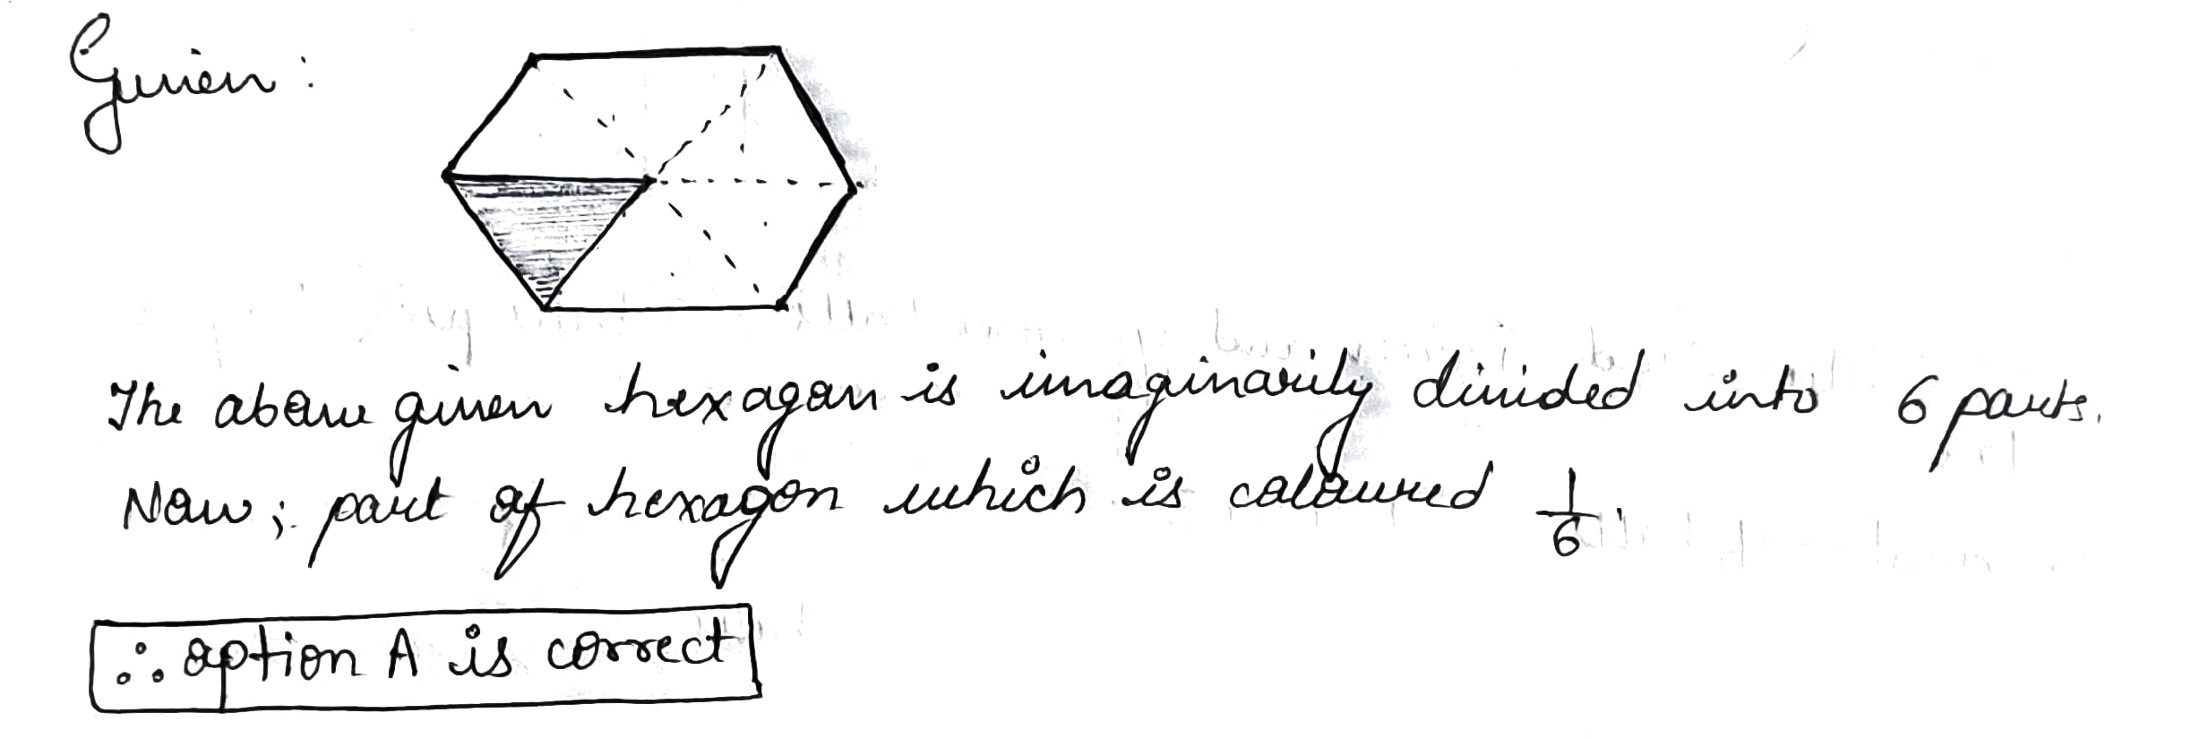 Given:
The above given hexagon is imaginarily divided into 6 parts.
Now; part of hexagon which is coloured 1/6.
∴ option A is correct